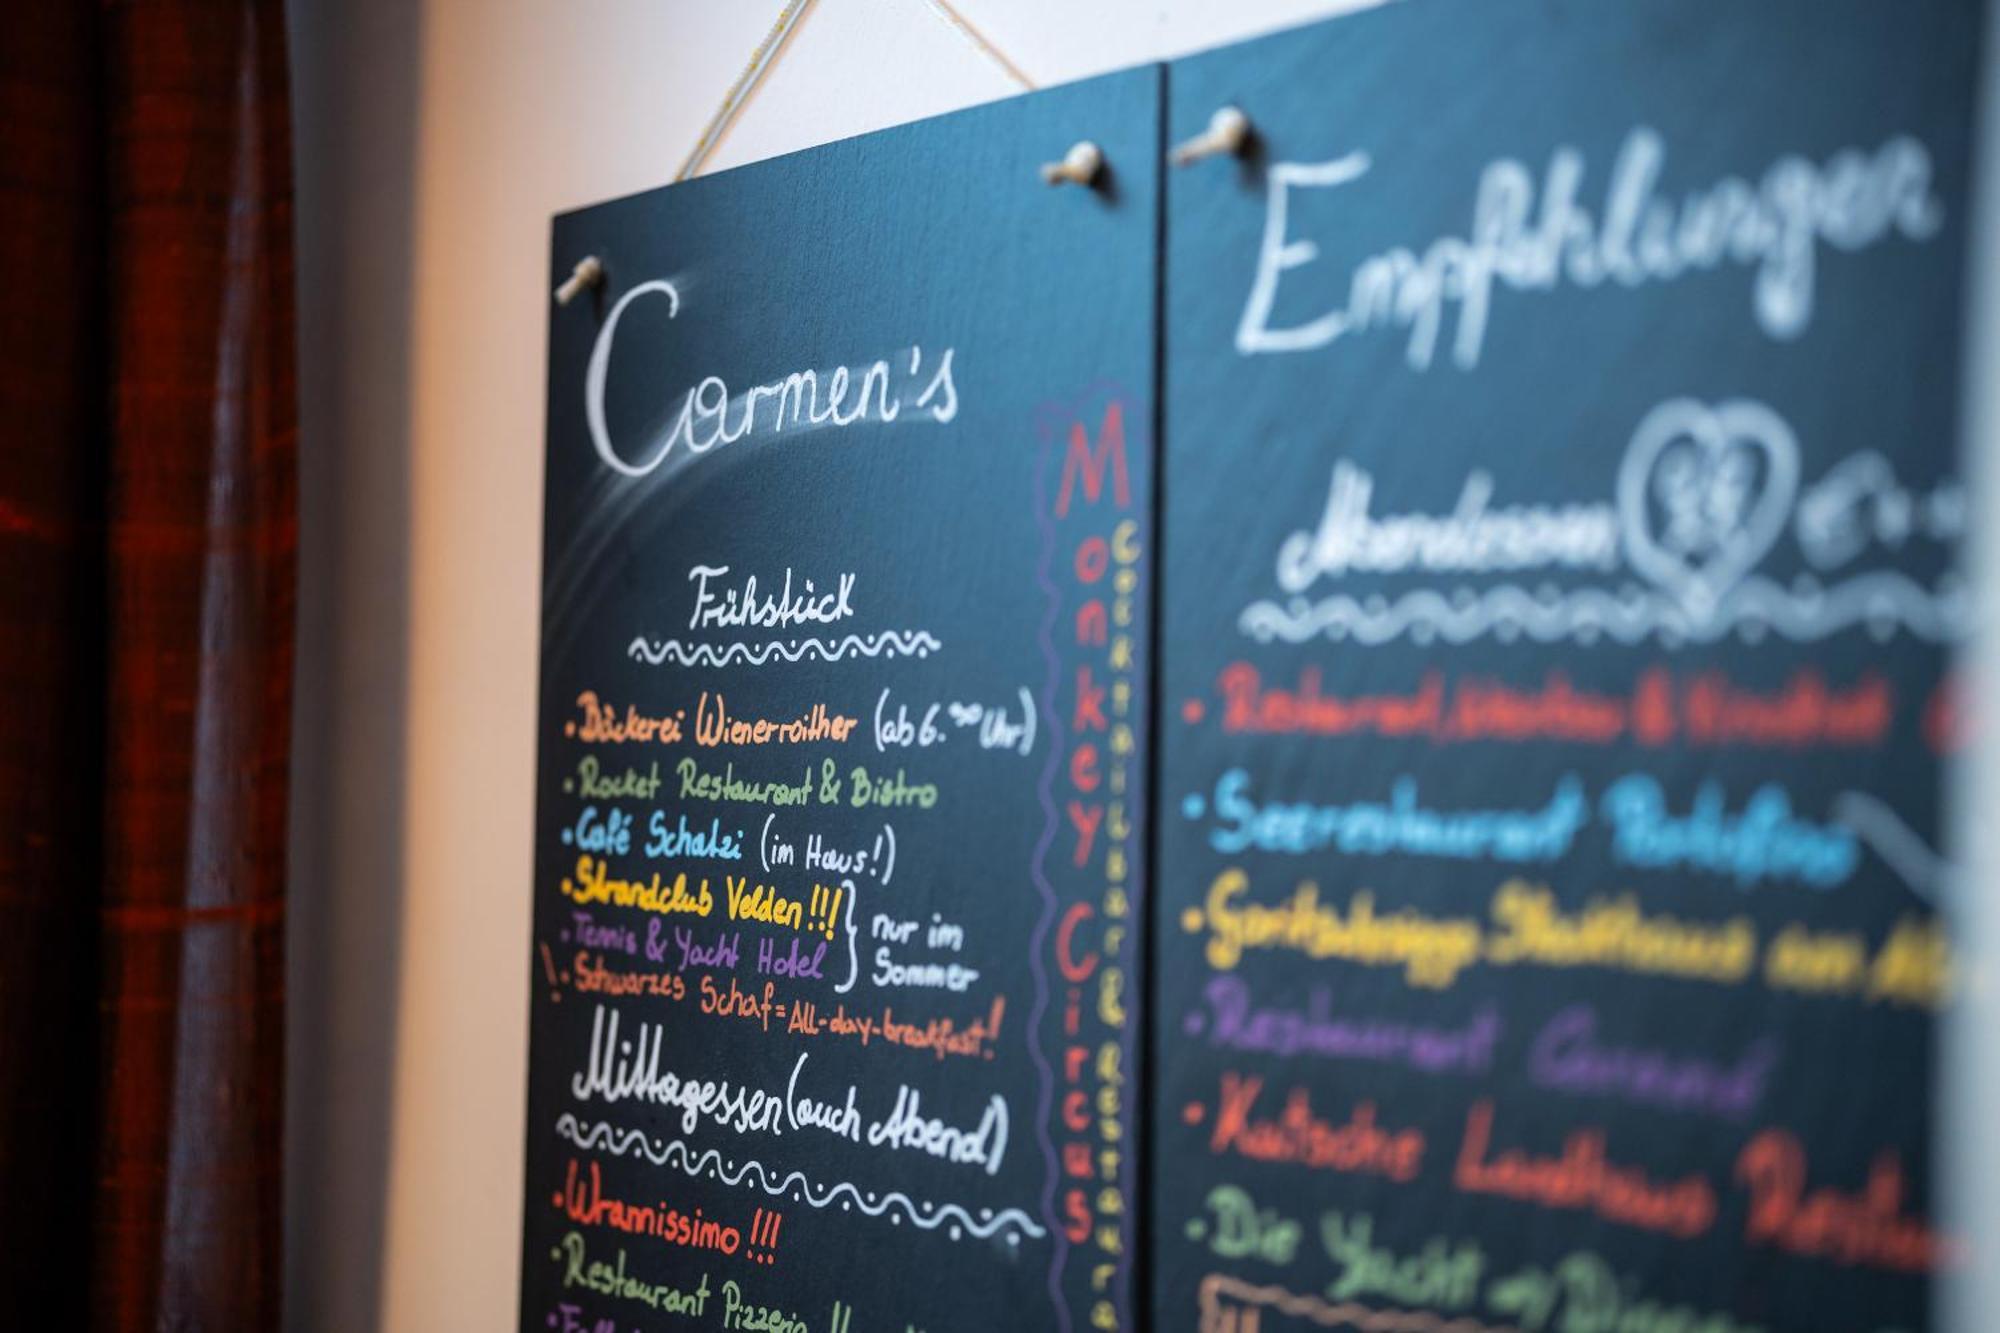 Carmen's
Frühstück
• Bäckerei Wienerroither (ab 6.00 Uhr)
• Rocket Restaurant & Bistro
• Café Schatzi (im Haus!)
• Strandclub Velden!!!
• Tennis & Yacht Hotel
} nur im
Sommer
! • Schwarzes Schaf = All-day-breakfast!
Mittagessen (auch Abend)
• Wrannissimo!!!
• Restaurant Pizzeria
Monkey Circus
Cocktailbar & Restaura
Empfehlungen
Abendessen
• Restaurant
• Seerestaurant Portofino
Stadthaus am
• Restaurant
• Kutsche Landhaus
• Die Yacht